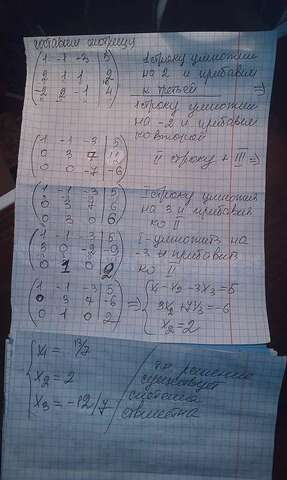 составим матрицу
1 -1 -3 | 5
2 1 1 | 2
-2 -2 -1 | 4
1 строку умножим
на 2 и прибавим
к третьей ⇒
1 строку умножим
на -2 и прибавим
ко второй
1 -1 -3 | 5
0 3 7 | 12
0 0 -7 | -6
II строку + III ⇒
1 -1 -3 | 5
0 3 0 6
I строку умножим
на 3 и прибавим
ко II
1 -1 -3 | 5
3 0 -2 -9
0 1 0 2
I - умножить на
-3 и прибавить
ко II
1 -1 -3 | 5
0 3 7 | -6
0 1 0 | 2
⇒
x₁ - x₂ - 3x₃ = 5
3x₂ + 7x₃ = -6
x₂ = 2
x₁ = 13/7
x₂ = 2
x₃ = -12/7
решение
существует
система
совместна